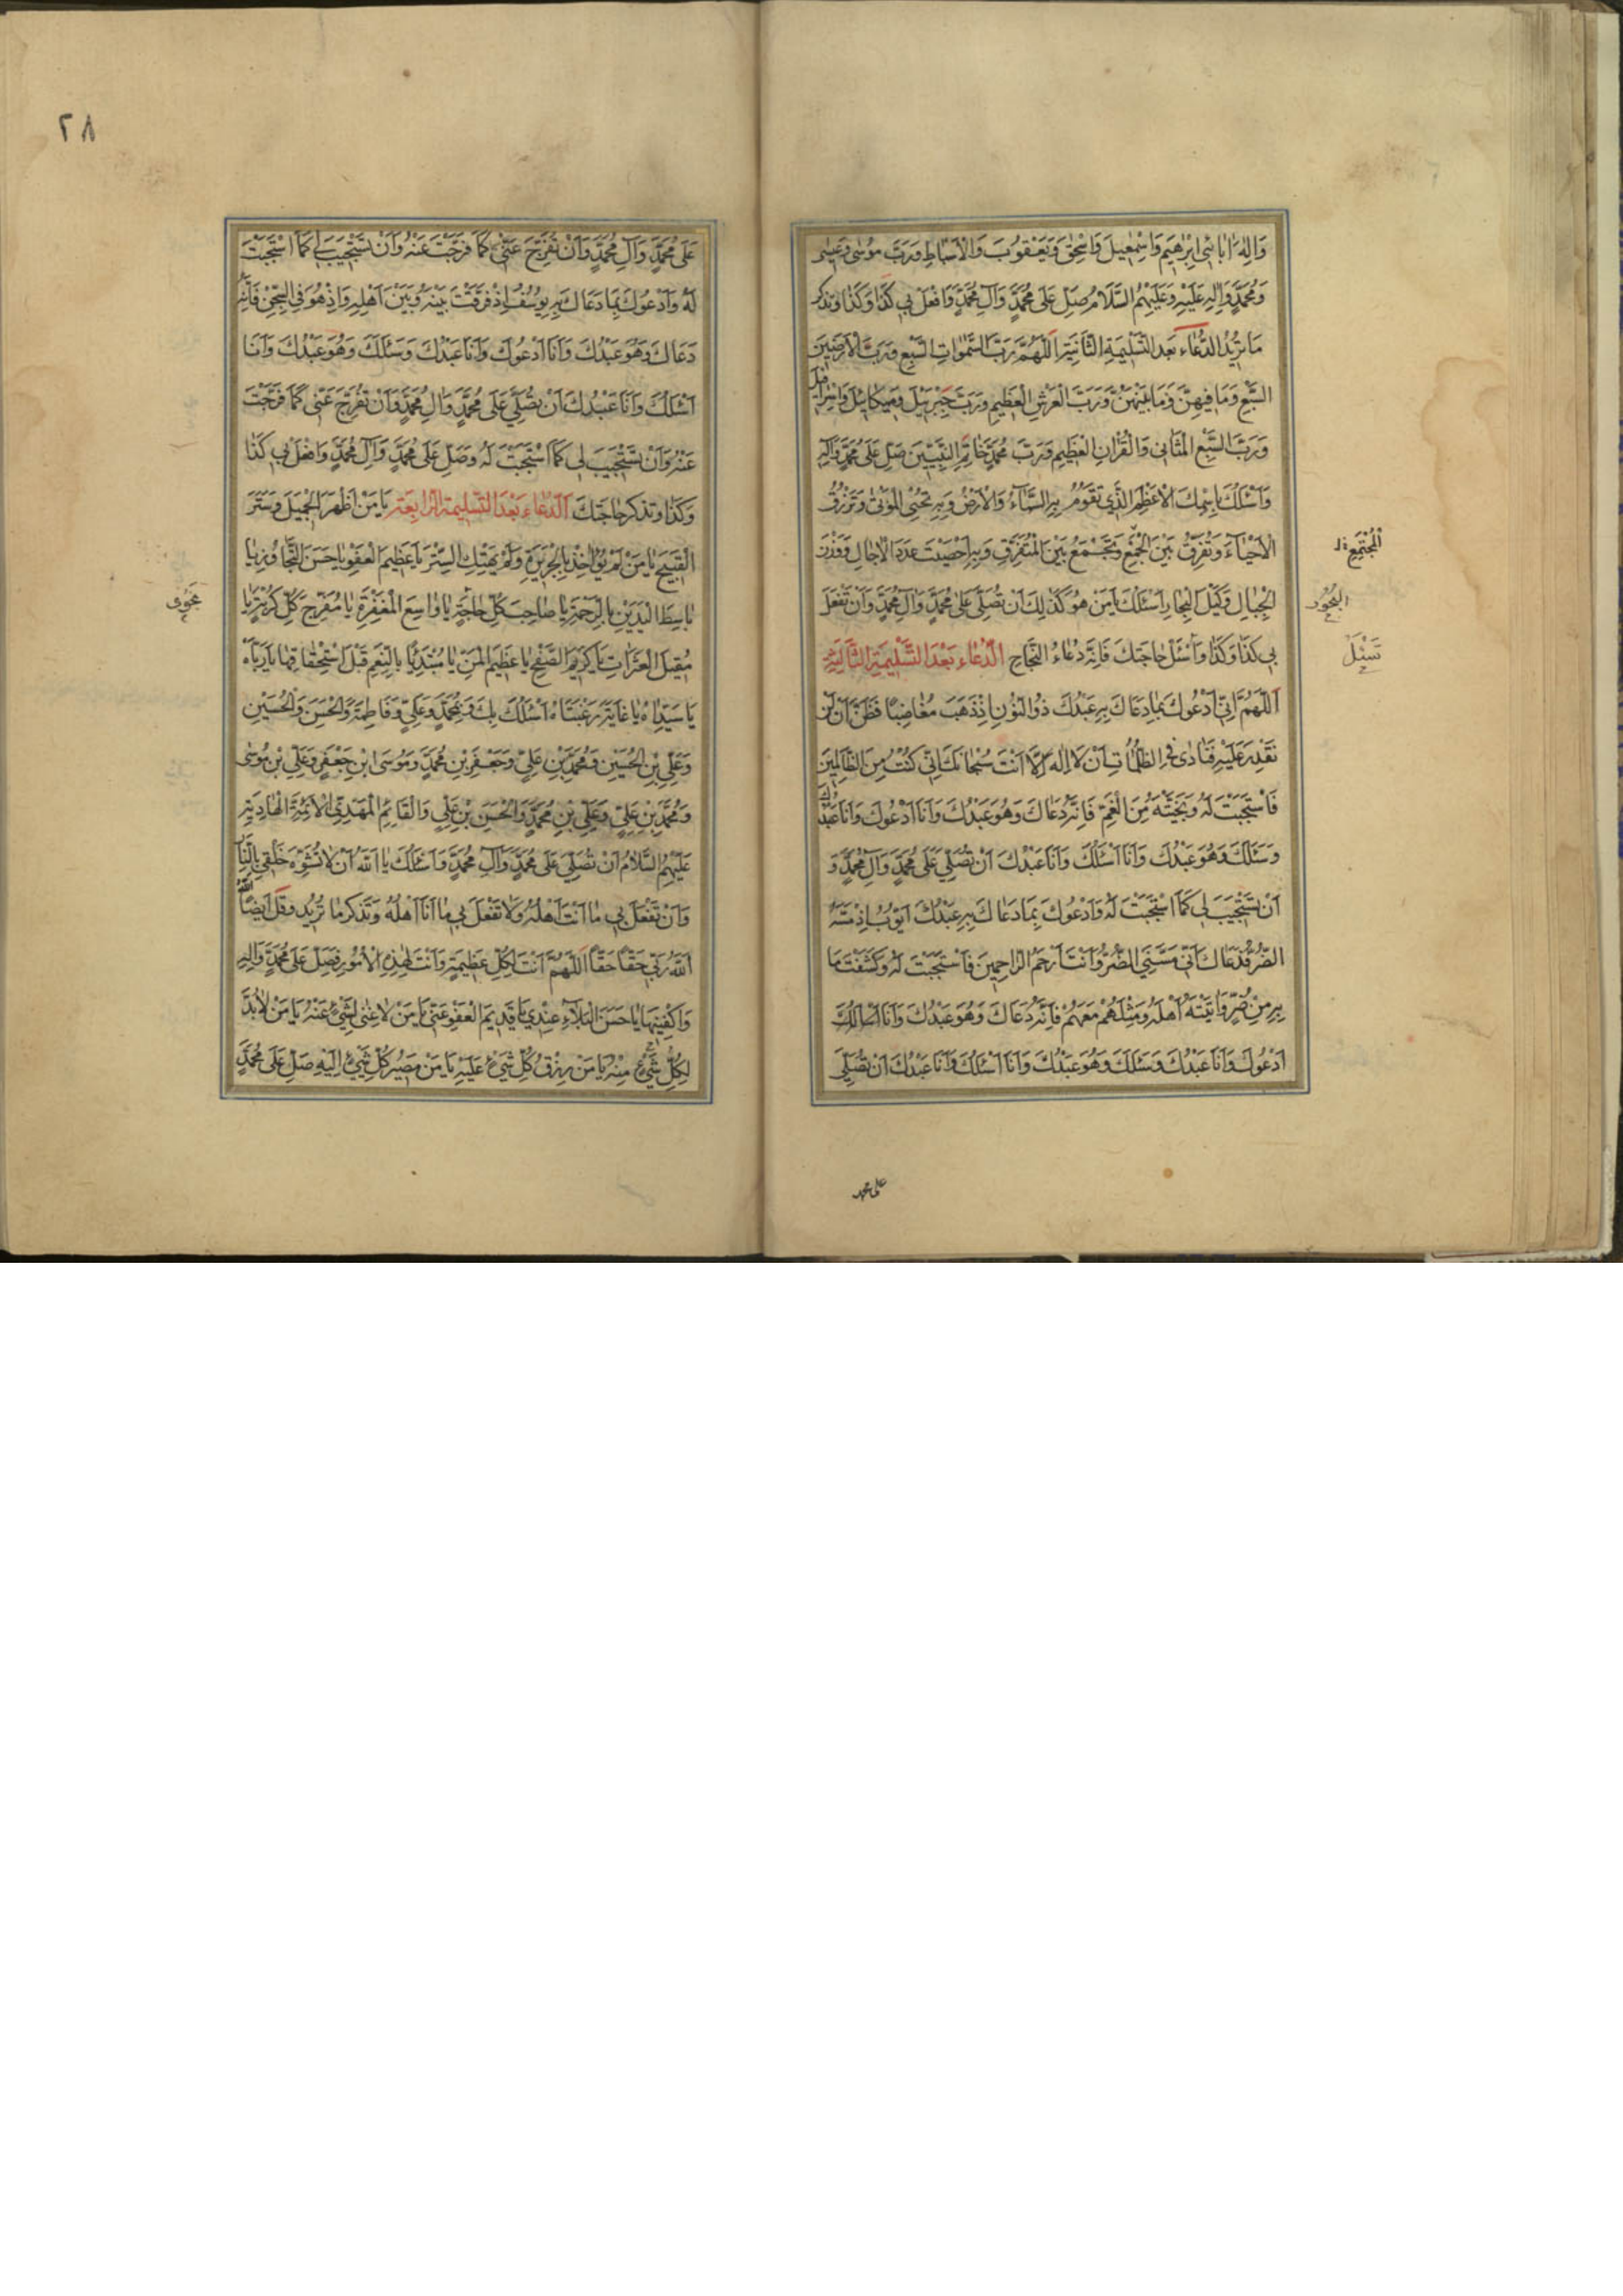 وَاِلٰهَ اٰبَائِي اِبْرٰهِيمَ وَاِسْمٰعِيلَ وَاِسْحٰقَ وَيَعْقُوبَ وَالْاَسْبَاطِ وَرَبَّ مُوسٰى وَعِيسٰى
وَمُحَمَّدٍ وَاٰلِهِ عَلَيْهِ وَعَلَيْهِمُ السَّلَامُ صَلِّ عَلٰى مُحَمَّدٍ وَاٰلِ مُحَمَّدٍ وَافْعَلْ بِي كَذَا وَكَذَا وَتَذْكُرُ
مَا تُرِيدُ الدُّعَاءُ بَعْدَ التَّسْلِيمَةِ الثَّانِيَةِ اَللّٰهُمَّ رَبَّ السَّمٰوَاتِ السَّبْعِ وَرَبَّ الْاَرَضِينَ
السَّبْعِ وَمَا فِيهِنَّ وَمَا بَيْنَهُنَّ وَرَبَّ الْعَرْشِ الْعَظِيمِ وَرَبَّ جَبْرَئِيلَ وَمِيكَائِيلَ وَاِسْرَافِيلَ
وَرَبَّ السَّبْعِ الْمَثَانِي وَالْقُرْاٰنِ الْعَظِيمِ وَرَبَّ مُحَمَّدٍ خَاتَمِ النَّبِيِّينَ صَلِّ عَلٰى مُحَمَّدٍ وَاٰلِهِ
وَاَسْئَلُكَ بِاسْمِكَ الْاَعْظَمِ الَّذِي تَقُومُ بِهِ السَّمَاءُ وَالْاَرْضُ وَبِهِ تُحْيِي الْمَوْتٰى وَتَرْزُقُ
الْاَحْيَاءَ وَتُفَرِّقُ بَيْنَ الْجَمْعِ وَتَجْمَعُ بَيْنَ الْمُتَفَرِّقِ وَبِهِ اَحْصَيْتَ عَدَدَ الْاٰجَالِ وَوَزْنَ
الْجِبَالِ وَكَيْلَ الْبِحَارِ اَسْئَلُكَ يَا مَنْ هُوَ كَذٰلِكَ اَنْ تُصَلِّيَ عَلٰى مُحَمَّدٍ وَاٰلِ مُحَمَّدٍ وَاَنْ تَفْعَلَ
بِي كَذَا وَكَذَا وَاسْئَلْ حَاجَتَكَ فَاِنَّهُ دُعَاءُ النَّجَاحِ الدُّعَاءُ بَعْدَ التَّسْلِيمَةِ الثَّالِثَةِ
اَللّٰهُمَّ اِنِّي اَدْعُوكَ بِمَا دَعَاكَ بِهِ عَبْدُكَ ذُو النُّونِ اِذْ ذَهَبَ مُغَاضِبًا فَظَنَّ اَنْ لَنْ
نَقْدِرَ عَلَيْهِ فَنَادٰى فِي الظُّلُمَاتِ اَنْ لَا اِلٰهَ اِلَّا اَنْتَ سُبْحَانَكَ اِنِّي كُنْتُ مِنَ الظَّالِمِينَ
فَاسْتَجَبْتَ لَهُ وَنَجَّيْتَهُ مِنَ الْغَمِّ فَاِنَّهُ دَعَاكَ وَهُوَ عَبْدُكَ وَاَنَا اَدْعُوكَ وَاَنَا عَبْدُكَ
وَسَئَلَكَ وَهُوَ عَبْدُكَ وَاَنَا اَسْئَلُكَ وَاَنَا عَبْدُكَ اَنْ تُصَلِّيَ عَلٰى مُحَمَّدٍ وَاٰلِ مُحَمَّدٍ وَ
اَنْ تَسْتَجِيبَ لِي كَمَا اسْتَجَبْتَ لَهُ وَاَدْعُوكَ بِمَا دَعَاكَ بِهِ عَبْدُكَ اَيُّوبُ اِذْ مَسَّهُ
الضُّرُّ فَدَعَاكَ اَنِّي مَسَّنِيَ الضُّرُّ وَاَنْتَ اَرْحَمُ الرَّاحِمِينَ فَاسْتَجَبْتَ لَهُ وَكَشَفْتَ مَا
بِهِ مِنْ ضُرٍّ وَاٰتَيْتَهُ اَهْلَهُ وَمِثْلَهُمْ مَعَهُمْ فَاِنَّهُ دَعَاكَ وَهُوَ عَبْدُكَ وَاَنَا
اَدْعُوكَ وَاَنَا عَبْدُكَ وَسَئَلَكَ وَهُوَ عَبْدُكَ وَاَنَا اَسْئَلُكَ وَاَنَا عَبْدُكَ اَنْ تُصَلِّيَ
الْمُجْتَمِعِ
الْبُحُورِ
تَسْئَلُ
على محمد
٢٨
عَلٰى مُحَمَّدٍ وَاٰلِ مُحَمَّدٍ وَاَنْ تُفَرِّجَ عَنِّي كَمَا فَرَّجْتَ عَنْهُ وَاَنْ تَسْتَجِيبَ لِي كَمَا اسْتَجَبْتَ
لَهُ وَاَدْعُوكَ بِمَا دَعَاكَ بِهِ يُوسُفُ اِذْ فَرَّقْتَ بَيْنَهُ وَبَيْنَ اَهْلِهِ وَاِذْ هُوَ فِي السِّجْنِ فَاِنَّهُ
دَعَاكَ وَهُوَ عَبْدُكَ وَاَنَا اَدْعُوكَ وَاَنَا عَبْدُكَ وَسَئَلَكَ وَهُوَ عَبْدُكَ وَاَنَا
اَسْئَلُكَ وَاَنَا عَبْدُكَ اَنْ تُصَلِّيَ عَلٰى مُحَمَّدٍ وَاٰلِ مُحَمَّدٍ وَاَنْ تُفَرِّجَ عَنِّي كَمَا فَرَّجْتَ
عَنْهُ وَاَنْ تَسْتَجِيبَ لِي كَمَا اسْتَجَبْتَ لَهُ وَصَلِّ عَلٰى مُحَمَّدٍ وَاٰلِ مُحَمَّدٍ وَافْعَلْ بِي كَذَا
وَكَذَا وَتَذْكُرُ حَاجَتَكَ اَلدُّعَاءُ بَعْدَ التَّسْلِيمَةِ الرَّابِعَةِ يَا مَنْ اَظْهَرَ الْجَمِيلَ وَسَتَرَ
الْقَبِيحَ يَا مَنْ لَمْ يُؤَاخِذْ بِالْجَرِيرَةِ وَلَمْ يَهْتِكِ السِّتْرَ يَا عَظِيمَ الْعَفْوِ يَا حَسَنَ التَّجَاوُزِ يَا
بَاسِطَ الْيَدَيْنِ بِالرَّحْمَةِ يَا صَاحِبَ كُلِّ حَاجَةٍ يَا وَاسِعَ الْمَغْفِرَةِ يَا مُفَرِّجَ كُلِّ كُرْبَةٍ يَا
مُقِيلَ الْعَثَرَاتِ يَا كَرِيمَ الصَّفْحِ يَا عَظِيمَ الْمَنِّ يَا مُبْتَدِئًا بِالنِّعَمِ قَبْلَ اسْتِحْقَاقِهَا يَا رَبَّاهُ
يَا سَيِّدَاهُ يَا غَايَةَ رَغْبَتَاهُ اَسْئَلُكَ بِكَ وَبِمُحَمَّدٍ وَعَلِيٍّ وَفَاطِمَةَ وَالْحَسَنِ وَالْحُسَيْنِ
وَعَلِيِّ بْنِ الْحُسَيْنِ وَمُحَمَّدِ بْنِ عَلِيٍّ وَجَعْفَرِ بْنِ مُحَمَّدٍ وَمُوسَى ابْنِ جَعْفَرٍ وَعَلِيِّ بْنِ مُوسٰى
وَمُحَمَّدِ بْنِ عَلِيٍّ وَعَلِيِّ بْنِ مُحَمَّدٍ وَالْحَسَنِ بْنِ عَلِيٍّ وَالْقَائِمِ الْمَهْدِيِّ الْاَئِمَّةِ الْهَادِيَةِ
عَلَيْهِمُ السَّلَامُ اَنْ تُصَلِّيَ عَلٰى مُحَمَّدٍ وَاٰلِ مُحَمَّدٍ وَاَسْئَلُكَ يَا اَللّٰهُ اَنْ لَا تُشَوِّهَ خَلْقِي بِالنَّارِ
وَاَنْ تَفْعَلَ بِي مَا اَنْتَ اَهْلُهُ وَلَا تَفْعَلَ بِي مَا اَنَا اَهْلُهُ وَتَذْكُرُ مَا تُرِيدُ وَقُلْ اَيْضًا اَللّٰهُ
اَللّٰهُ رَبِّي حَقًّا حَقًّا اَللّٰهُمَّ اَنْتَ لِكُلِّ عَظِيمَةٍ وَاَنْتَ لِهٰذِهِ الْاُمُورِ فَصَلِّ عَلٰى مُحَمَّدٍ وَاٰلِهِ
وَاكْفِنِيهَا يَا حَسَنَ الْبَلَاءِ عِنْدِي يَا قَدِيمَ الْعَفْوِ عَنِّي يَا مَنْ لَا غِنٰى لِشَيْءٍ عَنْهُ يَا مَنْ لَا بُدَّ
لِكُلِّ شَيْءٍ مِنْهُ يَا مَنْ رِزْقُ كُلِّ شَيْءٍ عَلَيْهِ يَا مَنْ مَصِيرُ كُلِّ شَيْءٍ اِلَيْهِ صَلِّ عَلٰى مُحَمَّدٍ
نَجْوٰى